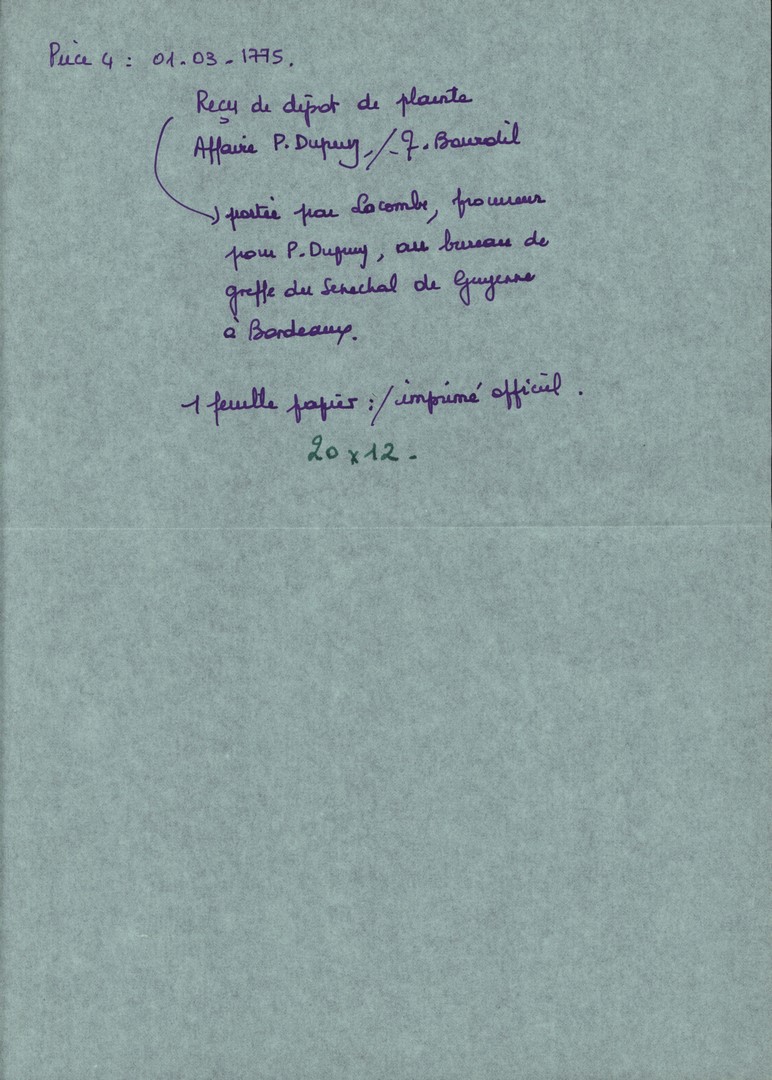 Pièce 4 : 01-03-1775.
Reçu de dépot de plainte
Affaire P. Dupuy -/- J. Bourdil
portée par Lacombe, procureur
pour P. Dupuy, au bureau de
greffe du Senechal de Guyenne
à Bordeaux.
1 feuille papier : / imprimé officiel .
20 x 12 -